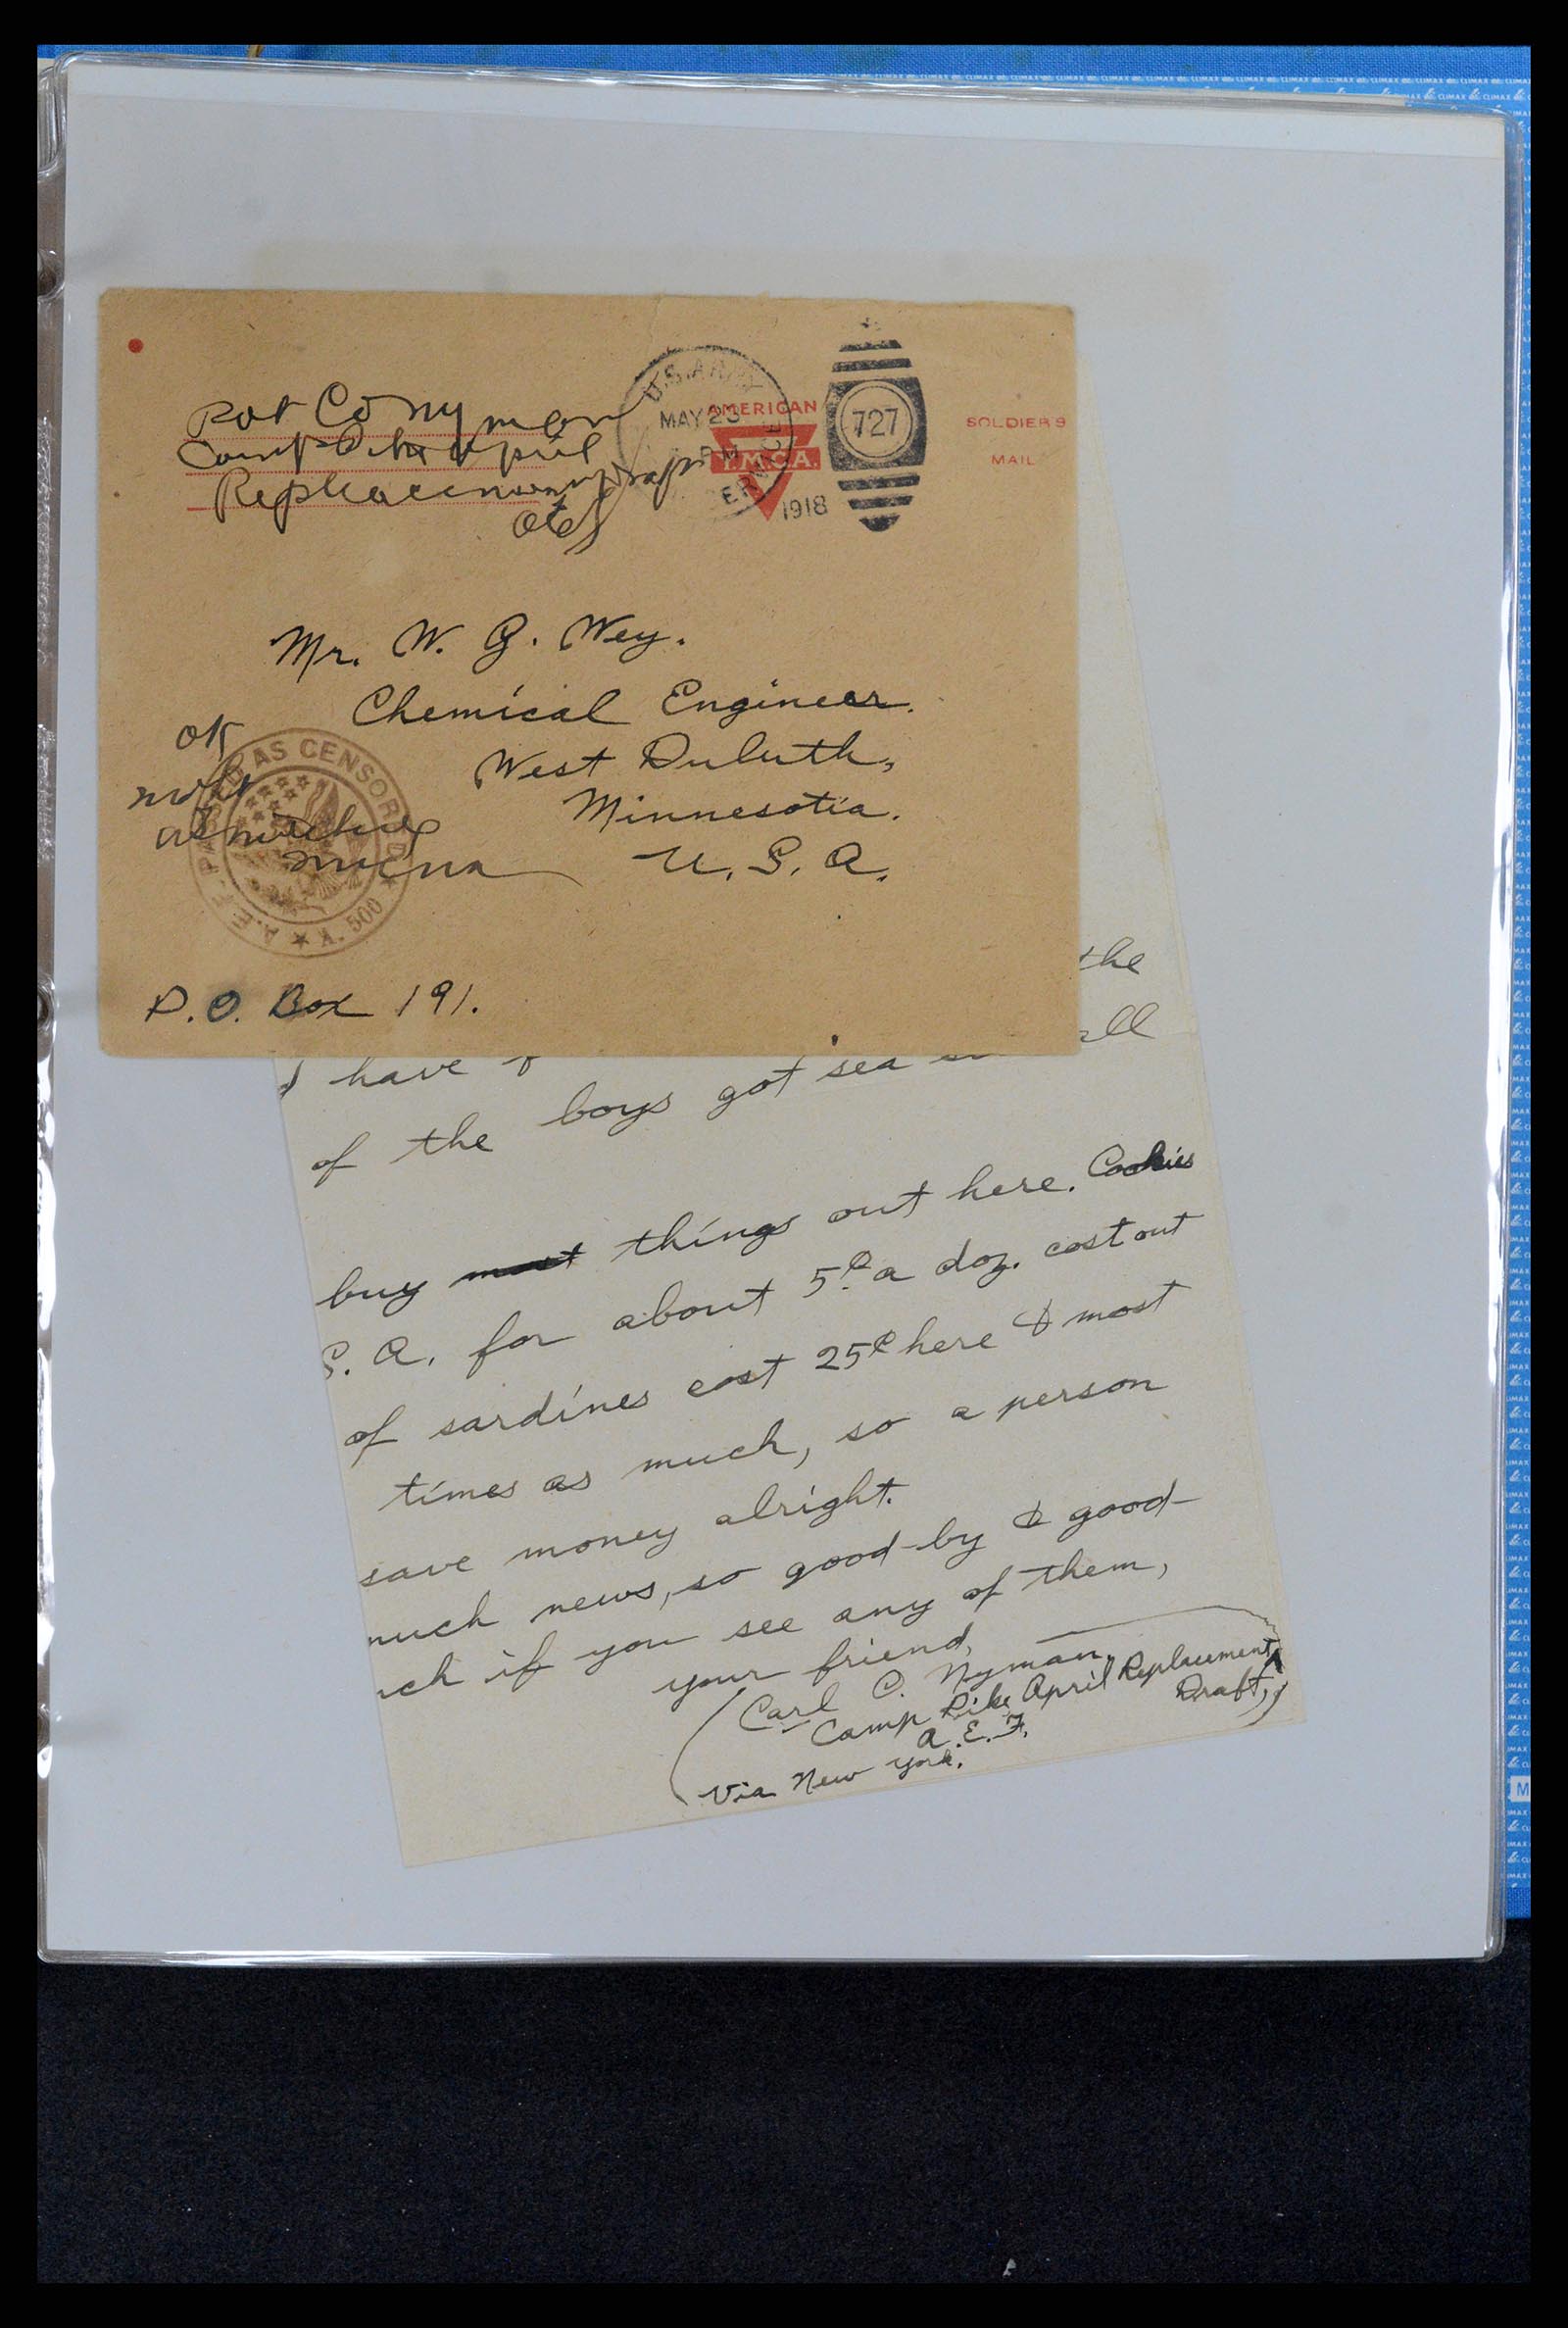 Pvt C O Nyman
Camp Pike April
Replacement Draft
U.S. ARMY
MAY 23
P.M.
SERVICE
1918
AMERICAN
Y.M.C.A.
727
SOLDIER'S
MAIL
Mr. W. G. Wey.
Chemical Engineer.
West Duluth,
Minnesotia.
U. S. A.
OK
A.E.F. PASSED AS CENSORED
K. 500
P.O. Box 191.
the
have
all
of the boys got sea
buy most things out here. Cookies
S. A. for about 5¢ a doz. cost out
of sardines cost 25¢ here & most
times as much, so a person
save money alright.
much news, so good-by & good-
if you see any of them,
your friend,
Carl O. Nyman,
Camp Pike April Replacement
Draft,
A. E. F.
Via New York.